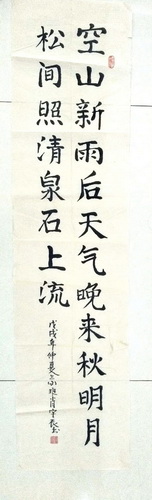 空山新雨后天气晚来秋明月
松间照清泉石上流
戊戌年仲夏